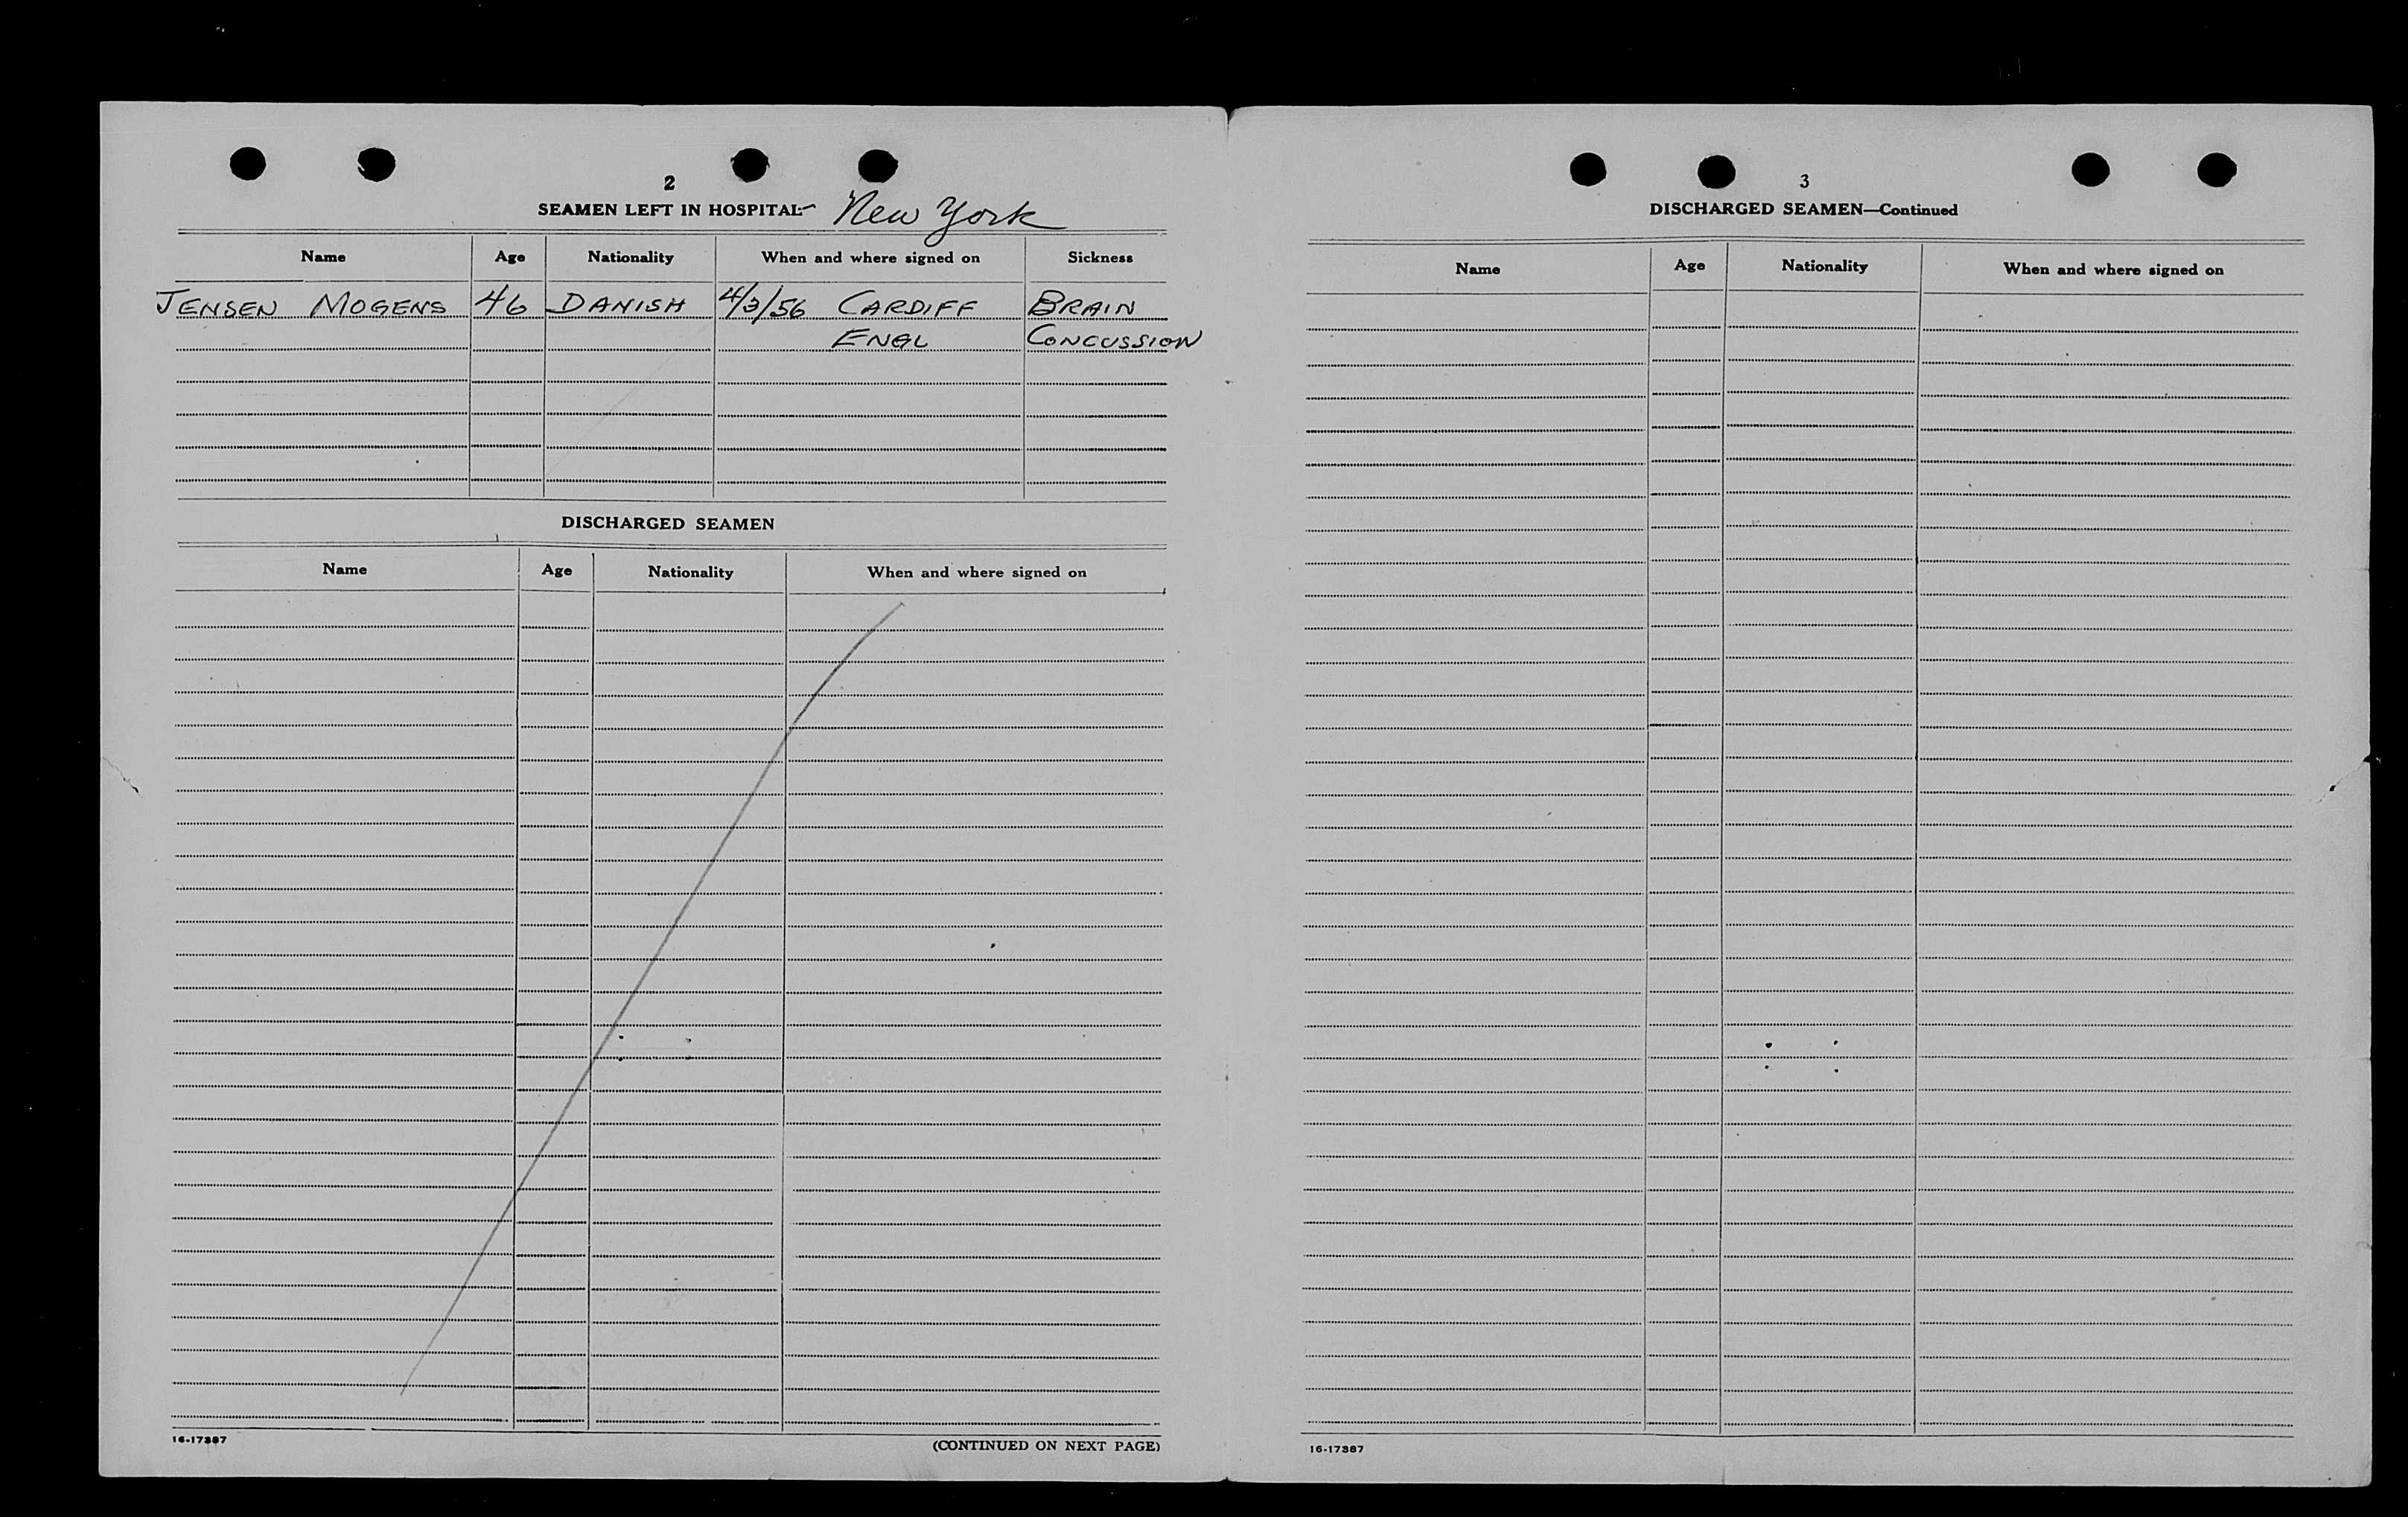 2
SEAMEN LEFT IN HOSPITAL- New York
Name Age Nationality When and where signed on Sickness
JENSEN MOGENS 46 DANISH 4/3/56 CARDIFF BRAIN
ENGL CONCUSSION
DISCHARGED SEAMEN
Name Age Nationality When and where signed on
16-17387
(CONTINUED ON NEXT PAGE)
3
DISCHARGED SEAMEN—Continued
Name Age Nationality When and where signed on
16-17387